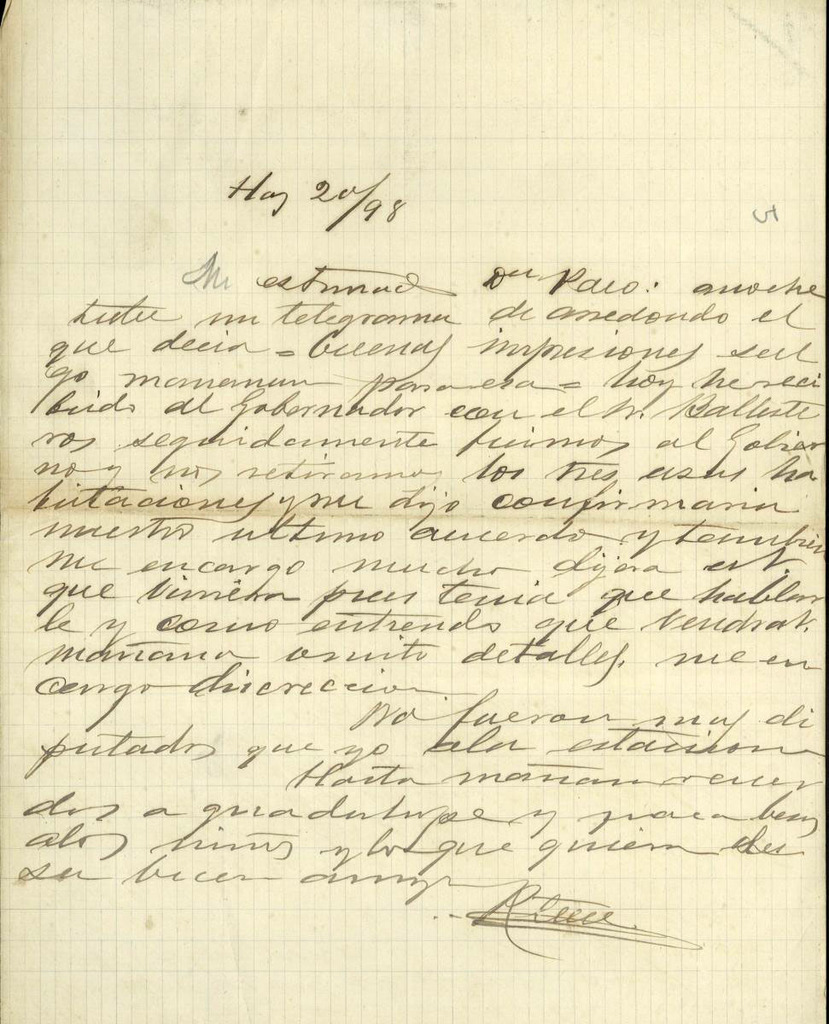 Hoy 20/98
5
Mi estimado Dn Paco: anoche
tube un telegrama de arredondo el
que decia = buenas impresiones sal
go mañana para esa = hoy he reci
bido al Gobernador con el Sr. Balleste
ros seguidamente fuimos al Gobier
no y nos retiramos los tres a sus ha
bitaciones y me dijo confirmaria
nuestro ultimo acuerdo y tambien
me encargo mucho dijera a V.
que viniera pues tenia que hablar
le y como entiendo que vendra V.
mañana omito detalles. me en
cargo discreccion
No fueron mas di
putados que yo ala estacion
Hasta mañana recuer
dos a guadalupe y Paca besos
alos niños y lo que quiera de
su buen amigo